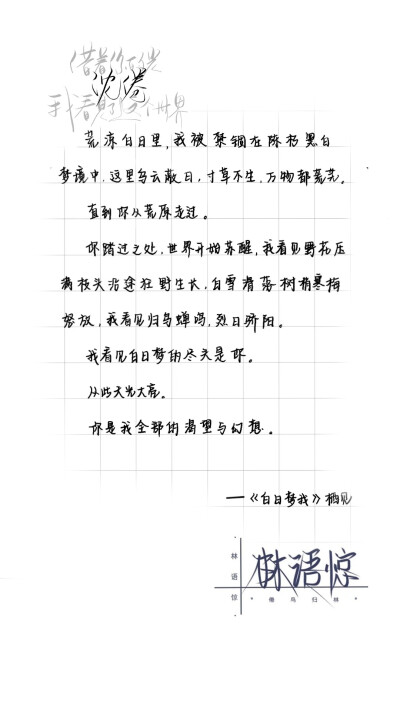 借着你的光
沈倦
我看到这个世界
荒凉白日里,我被禁锢在陈朽黑白
梦境中,这里乌云蔽日,寸草不生,万物都荒芜。
直到你从荒原走过。
你踏过之处,世界开始苏醒,我看见野花压
满枝头沿途狂野生长,白雪滑落树梢寒梅
怒放,我看见归鸟蝉鸣,烈日骄阳。
我看见白日梦的尽头是你。
从此天光大亮。
你是我全部的渴望与幻想。
——《白日梦我》栖见
林语惊
林语惊
倦鸟归林